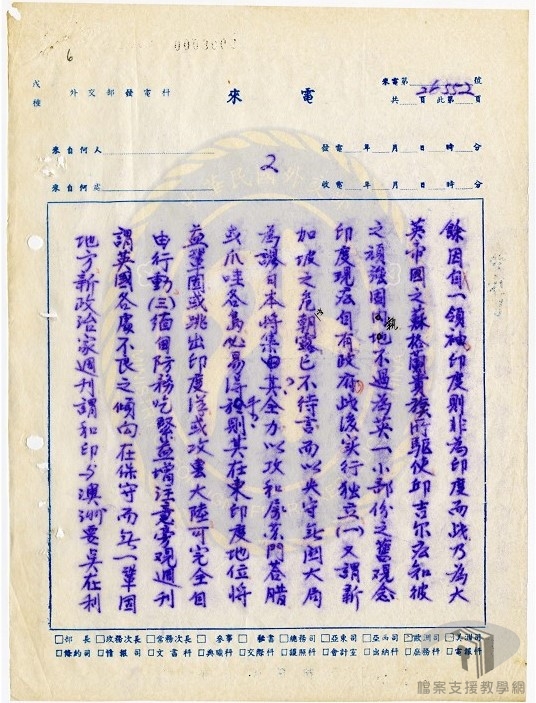 6
0003600
戊種
外交部發電科
來電
來電第 26552 號
共 頁 此第 頁
來自何人
來自何處
2
發電 年 月 日 時 分
收電 年 月 日 時 分
餘因自一領袖印度則非為印度而战乃為大
英帝国之蘇格蘭貴族所驅使邱吉尔宏知彼
之頑強固执地不過為英一小部份之舊观念
印度現应自有政府战後实行独立(一)又謂新
加坡之危
朝露已不待言而以失守無関大局
為譲日本将集中其全力以攻和屏荣門答腊
或爪哇各島必易得於則其在東印度地位将
益鞏固或跳出印度洋或攻襄大陸可完全自
由行動(三)緬甸防務吃緊益增注意旁观週刊
謂英國各處不良之傾向在保守而無一鞏固
地方新政治家週刊謂和印与澳洲要員在利
部長 政務次長 常務次長 參事 秘書 總務司 亞東司 亞西司 歐洲司 美洲司
條約司 情報司 文書科 典職科 交際科 護照科 會計室 出納科 庶務科 電報科
檔案支援教學網